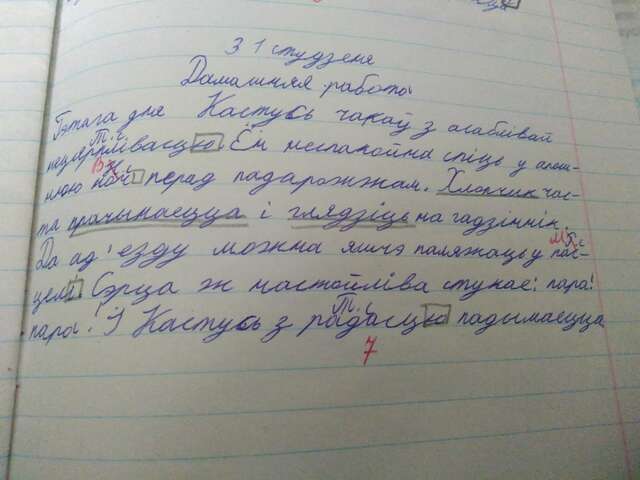 3 1 студзеня
Дамашняя работа
Гэтага дня Кастусь чакаў з асаблівай
Т. с
нецярплівасцю. Ён неспакойна спіць у апош-
В. с
нюю ноч перад падарожжам. Хлопчик час-
та прачынаецца і глядзіць на гадзіннік.
М. с
Да ад'езду можна яшчэ паляжаць у пас-
целі. Сэрца ж настойліва стукае: пара!
Т. с
пара! І Кастусь з радасцю падымаецца
7